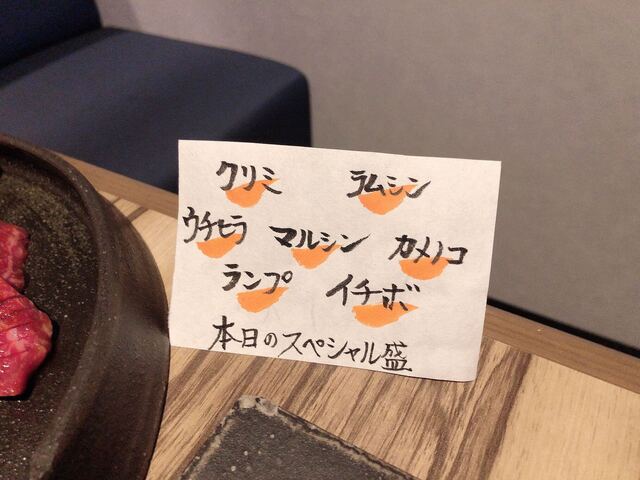 クリミ ラムシン
ウチヒラ マルシン カメノコ
ランプ イチボ
本日のスペシャル盛